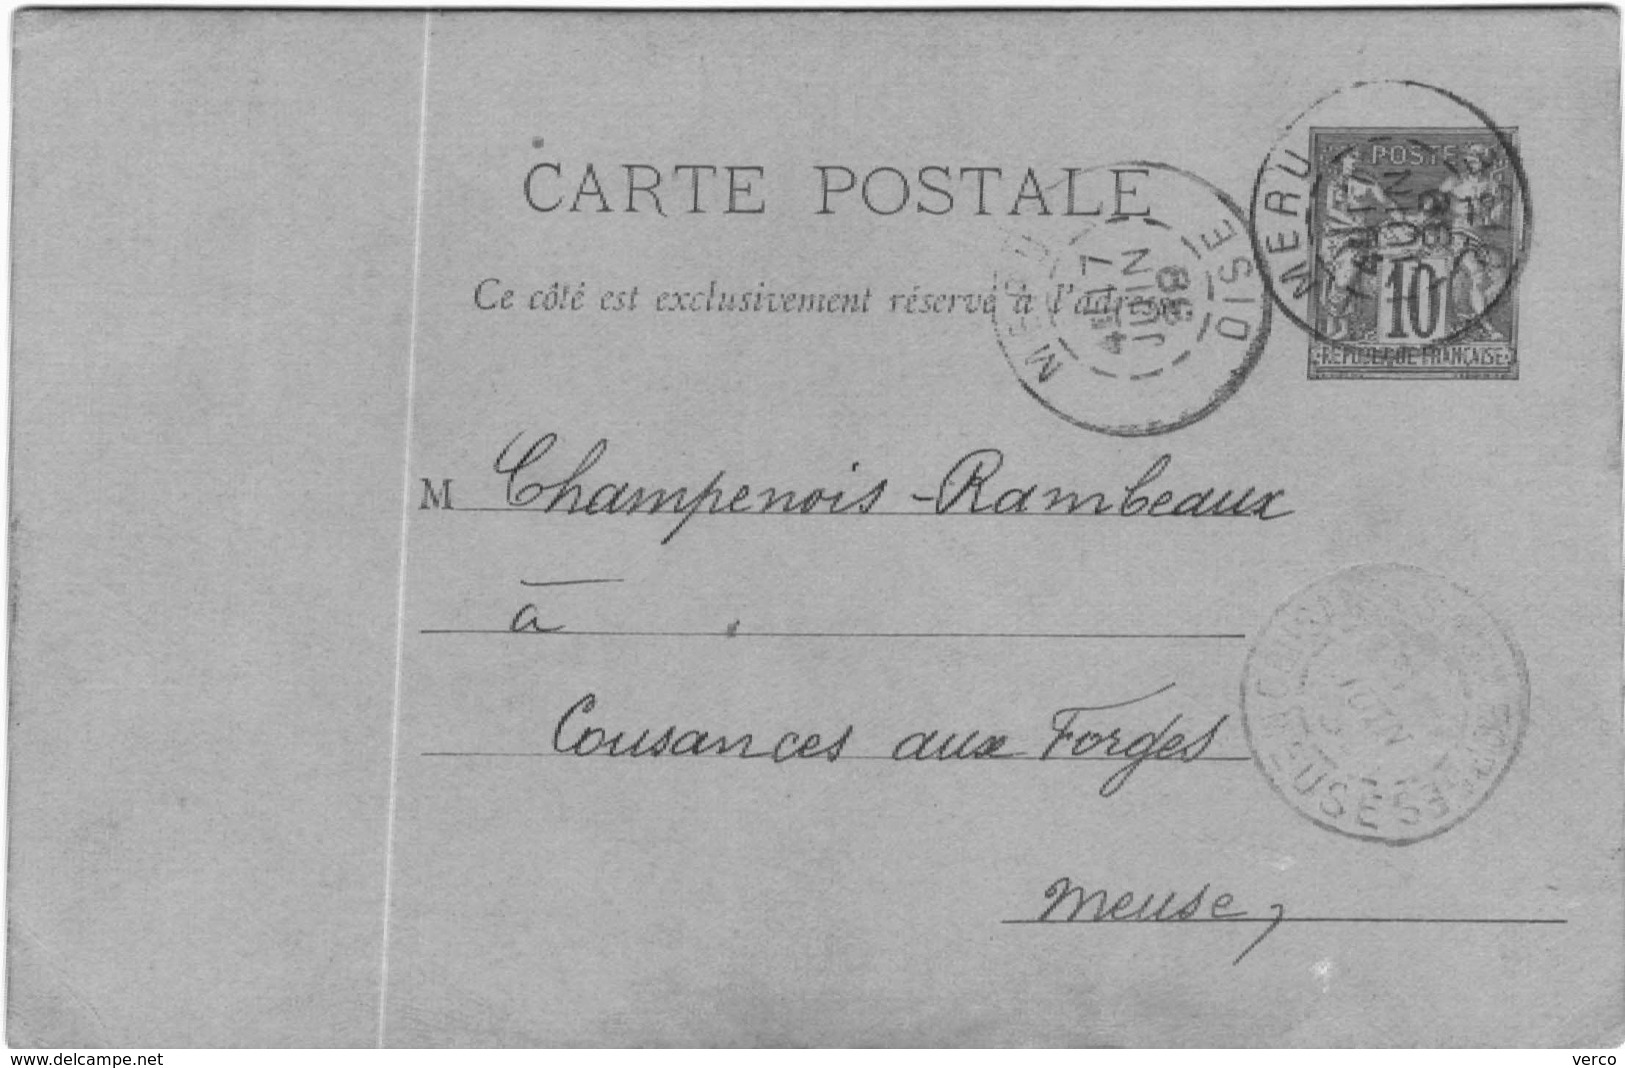 CARTE POSTALE
Ce côté est exclusivement réservé à l'adresse
POSTE
10
REPUBLIQUE FRANÇAISE
MERU
OISE
4E 17
JUIN
88
MERU
JUIN
M Champenois-Rambeaux
à
Cousances aux Forges
Meuse,
JUIN
MEUSE
www.delcampe.net
verco